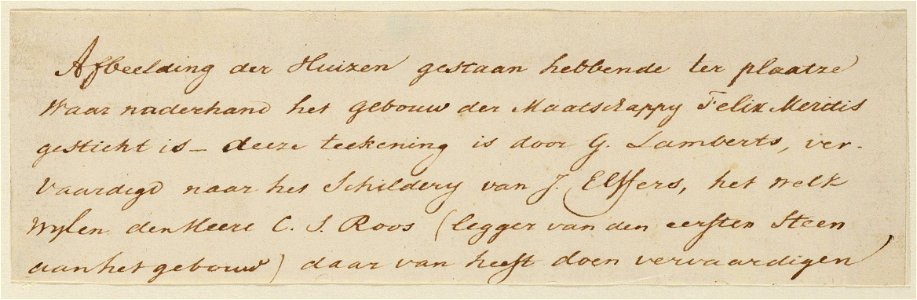 Afbeelding der Huizen gestaan hebbende ter plaatze
Waar naderhand het gebouw der Maatschappy Felix Meritis
gesticht is – deeze teekening is door G. Lamberts, ver-
vaardigd naar het Schildery van J. Elffers, het welk
Wylen den Heere C. S. Roos (legger van den eersten Steen
aan het gebouw) daar van heeft doen vervaardigen